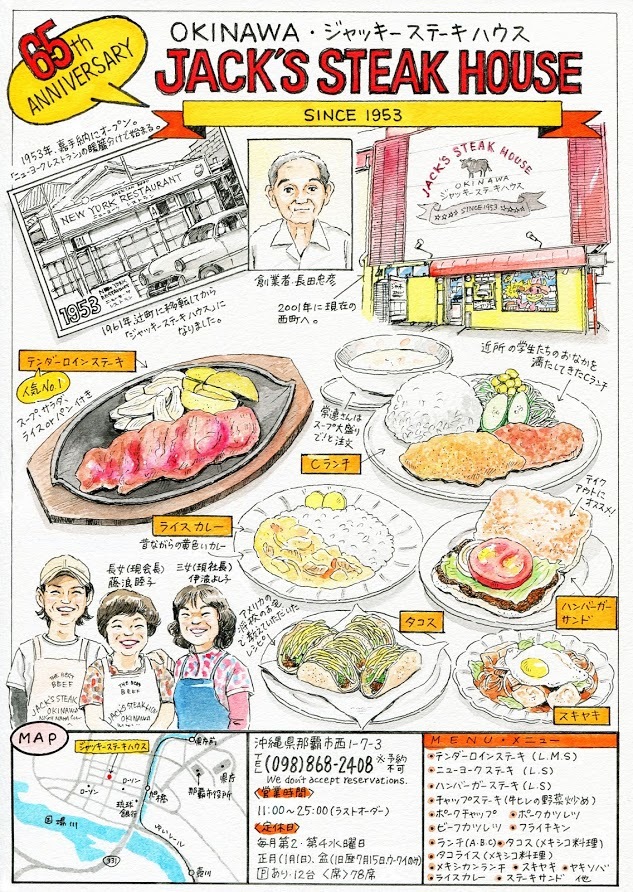 65th
ANNIVERSARY
OKINAWA・ジャッキーステーキハウス
JACK'S STEAK HOUSE
SINCE 1953
1953年、嘉手納にオープン。
「ニューヨークレストラン」の暖簾分けで始まる。
NEW YORK RESTAURANT
1953
1961年辻町に移転してから
「ジャッキーステーキハウス」に
なりました。
創業者・長田忠彦
2001年に現在の
西町へ。
JACK'S STEAK HOUSE
OKINAWA
ジャッキーステーキハウス
SINCE 1953
テンダーロインステーキ
人気No.1
スープ サラダ
ライスorパン付き
常連さんは
スープ大盛り
で!と注文
近所の学生たちのおなかを
満たしてきたCランチ
Cランチ
ライスカレー
昔ながらの黄色いカレー
テイク
アウトに
オススメ!
ハンバーガー
サンド
長女(現会長)
藤浪睦子
三女(現社長)
伊波よし子
アメリカの
将校のお宅
で教えていただいた
レシピ!
タコス
スキヤキ
THE BEST
BEEF
JACK'S STEAK
OKINAWA
THE BEST
BEEF
JACK'S STEAK HOUSE
OKINAWA
MAP
ジャッキーステーキハウス
県庁前
ローソン
ローソン
琉球
銀行
旭橋
県庁
那覇市役所
国場川
ゆいレール
331
壺川
沖縄県那覇市西1-7-3
TEL (098)868-2408 ※予約不可
We don't accept reservations.
営業時間
11:00〜25:00(ラストオーダー)
定休日
毎月第2・第4水曜日
正月(1月1日)、盆(旧暦7月15日、ウークイの日)
Pあり・12台 〈席〉78席
MENU・メニュー
・テンダーロインステーキ (L.M.S)
・ニューヨークステーキ (L.S)
・ハンバーガーステーキ (L.S)
・チャップステーキ(牛ヒレの野菜炒め)
・ポークチャップ ・ポークカツレツ
・ビーフカツレツ ・フライチキン
・ランチ(A.B.C) ・タコス(メキシコ料理)
・タコライス(メキシコ料理)
・メキシカンランチ ・スキヤキ ・ヤキソバ
・ライスカレー ・ステーキサンド 他